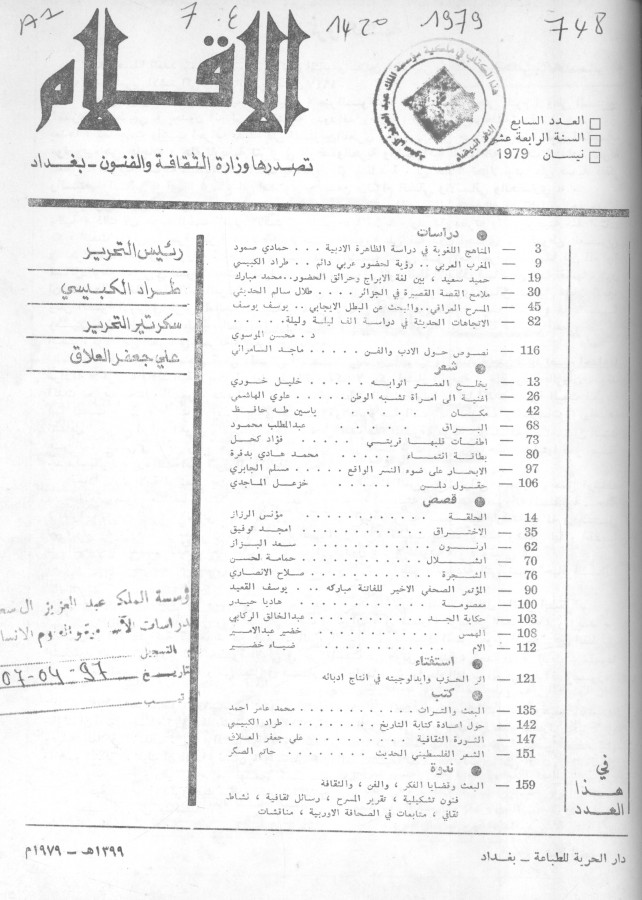 A1 7.4 1420 1979 748
الاقلام
تصدرها وزارة الثقافة والفنون - بغداد
□ العدد السابع
□ السنة الرابعة عشر
□ نيسان 1979
هذا الكتاب في ملكية مؤسسة الملك عبد العزيز آل سعود
الدار البيضاء
رئيس التحرير
طراد الكبيسي
سكرتير التحرير
علي جعفر العلاق
دراسات
3 — المناهج اللغوية في دراسة الظاهرة الادبية . . . حمادي صمود
9 — المغرب العربي . . رؤية لحضور عربي دائم . . طراد الكبيسي
19 — حميد سعيد ، بين لغة الابراج وحرائق الحضور..محمد مبارك
30 — ملامح القصة القصيرة في الجزائر . . . . طلال سالم الحديثي
45 — المسرح العراقي..والبحث عن البطل الايجابي . . يوسف يوسف
82 — الاتجاهات الحديثة في دراسة الف ليلة وليلة. . . . .
د . محسن الموسوي
116 — نصوص حول الادب والفن . . . . . ماجد السامرائي
شعر
13 — يخلع العصر اثوابه . . . . . خليل خوري
26 — اغنية الى امرأة تشبه الوطن . . . . . علوي الهاشمي
42 — مكان . . . . . ياسين طه حافظ
68 — البراق . . . . . عبدالمطلب محمود
73 — اطفأت قلبها قريتي . . . . . فؤاد كحل
80 — بطاقة انتماء . . . . . محمد هادي بدفرة
97 — الابحار على ضوء النسر الواقع . . . . . مسلم الجابري
106 — حقول دلن . . . . . خزعل الماجدي
قصص
14 — الحلقة . . . . . مؤنس الرزاز
35 — الاختراق . . . . . امجد توفيق
62 — ارنون . . . . . سعد البزاز
70 — ابتلال . . . . . حمامة لحسن
76 — الشجرة . . . . . صلاح الانصاري
90 — المؤتمر الصحفي الاخير للفاتنة مباركه . . . يوسف القعيد
100 — معصومة . . . . . هاديا حيدر
103 — حكاية الجد . . . . . عبدالخالق الركابي
108 — الهمس . . . . . خضير عبدالامير
112 — الام . . . . . ضياء خضير
استفتاء
121 — اثر الحزب وايدلوجيته في انتاج ادبائه
كتب
135 — البعث والتراث . . . . . محمد عامر احمد
142 — حول اعادة كتابة التاريخ . . . . . طراد الكبيسي
147 — الثورة الثقافية . . . . . علي جعفر العلاق
151 — الشعر الفلسطيني الحديث . . . . . حاتم الصكر
ندوة
159 — البعث وقضايا الفكر ، والفن ، والثقافة
فنون تشكيلية ، تقرير المسرح ، رسائل ثقافية ، نشاط
ثقافي ، متابعات في الصحافة الاوربية ، مناقشات
في
هذا
العدد
ؤسسة الملك عبد العزيز آل سعو
لدراسات الاسلامية والعلوم الانسا
التسجيل
تاريخ 07-04-97
دار الحرية للطباعة - بغداد
١٣٩٩هـ - ١٩٧٩م